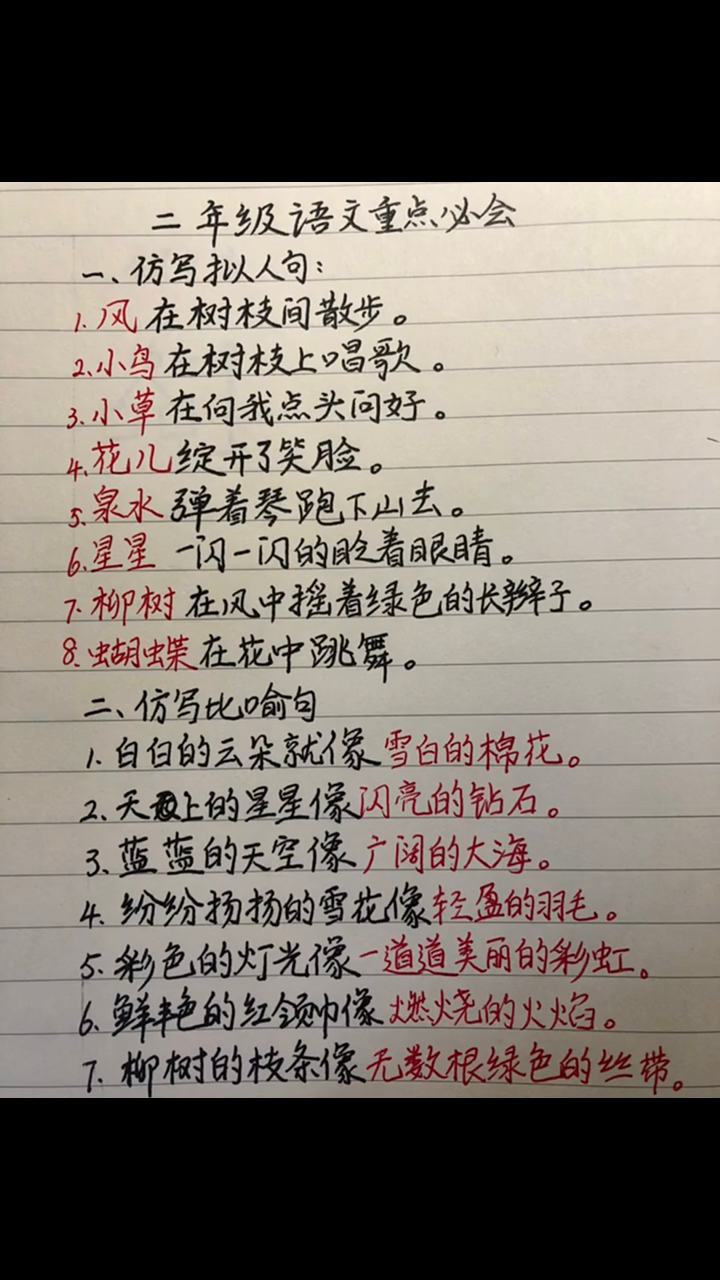 二年级语文重点必会
一、仿写拟人句：
1.风在树枝间散步。
2.小鸟在树枝上唱歌。
3.小草在向我点头问好。
4.花儿绽开了笑脸。
5.泉水弹着琴跑下山去。
6.星星一闪一闪的眨着眼睛。
7.柳树在风中摇着绿色的长辫子。
8.蝴蝶在花中跳舞。
二、仿写比喻句
1.白白的云朵就像雪白的棉花。
2.天上的星星像闪亮的钻石。
3.蓝蓝的天空像广阔的大海。
4.纷纷扬扬的雪花像轻盈的羽毛。
5.彩色的灯光像一道道美丽的彩虹。
6.鲜艳色的红领巾像燃烧的火焰。
7.柳树的枝条像无数根绿色的丝带。